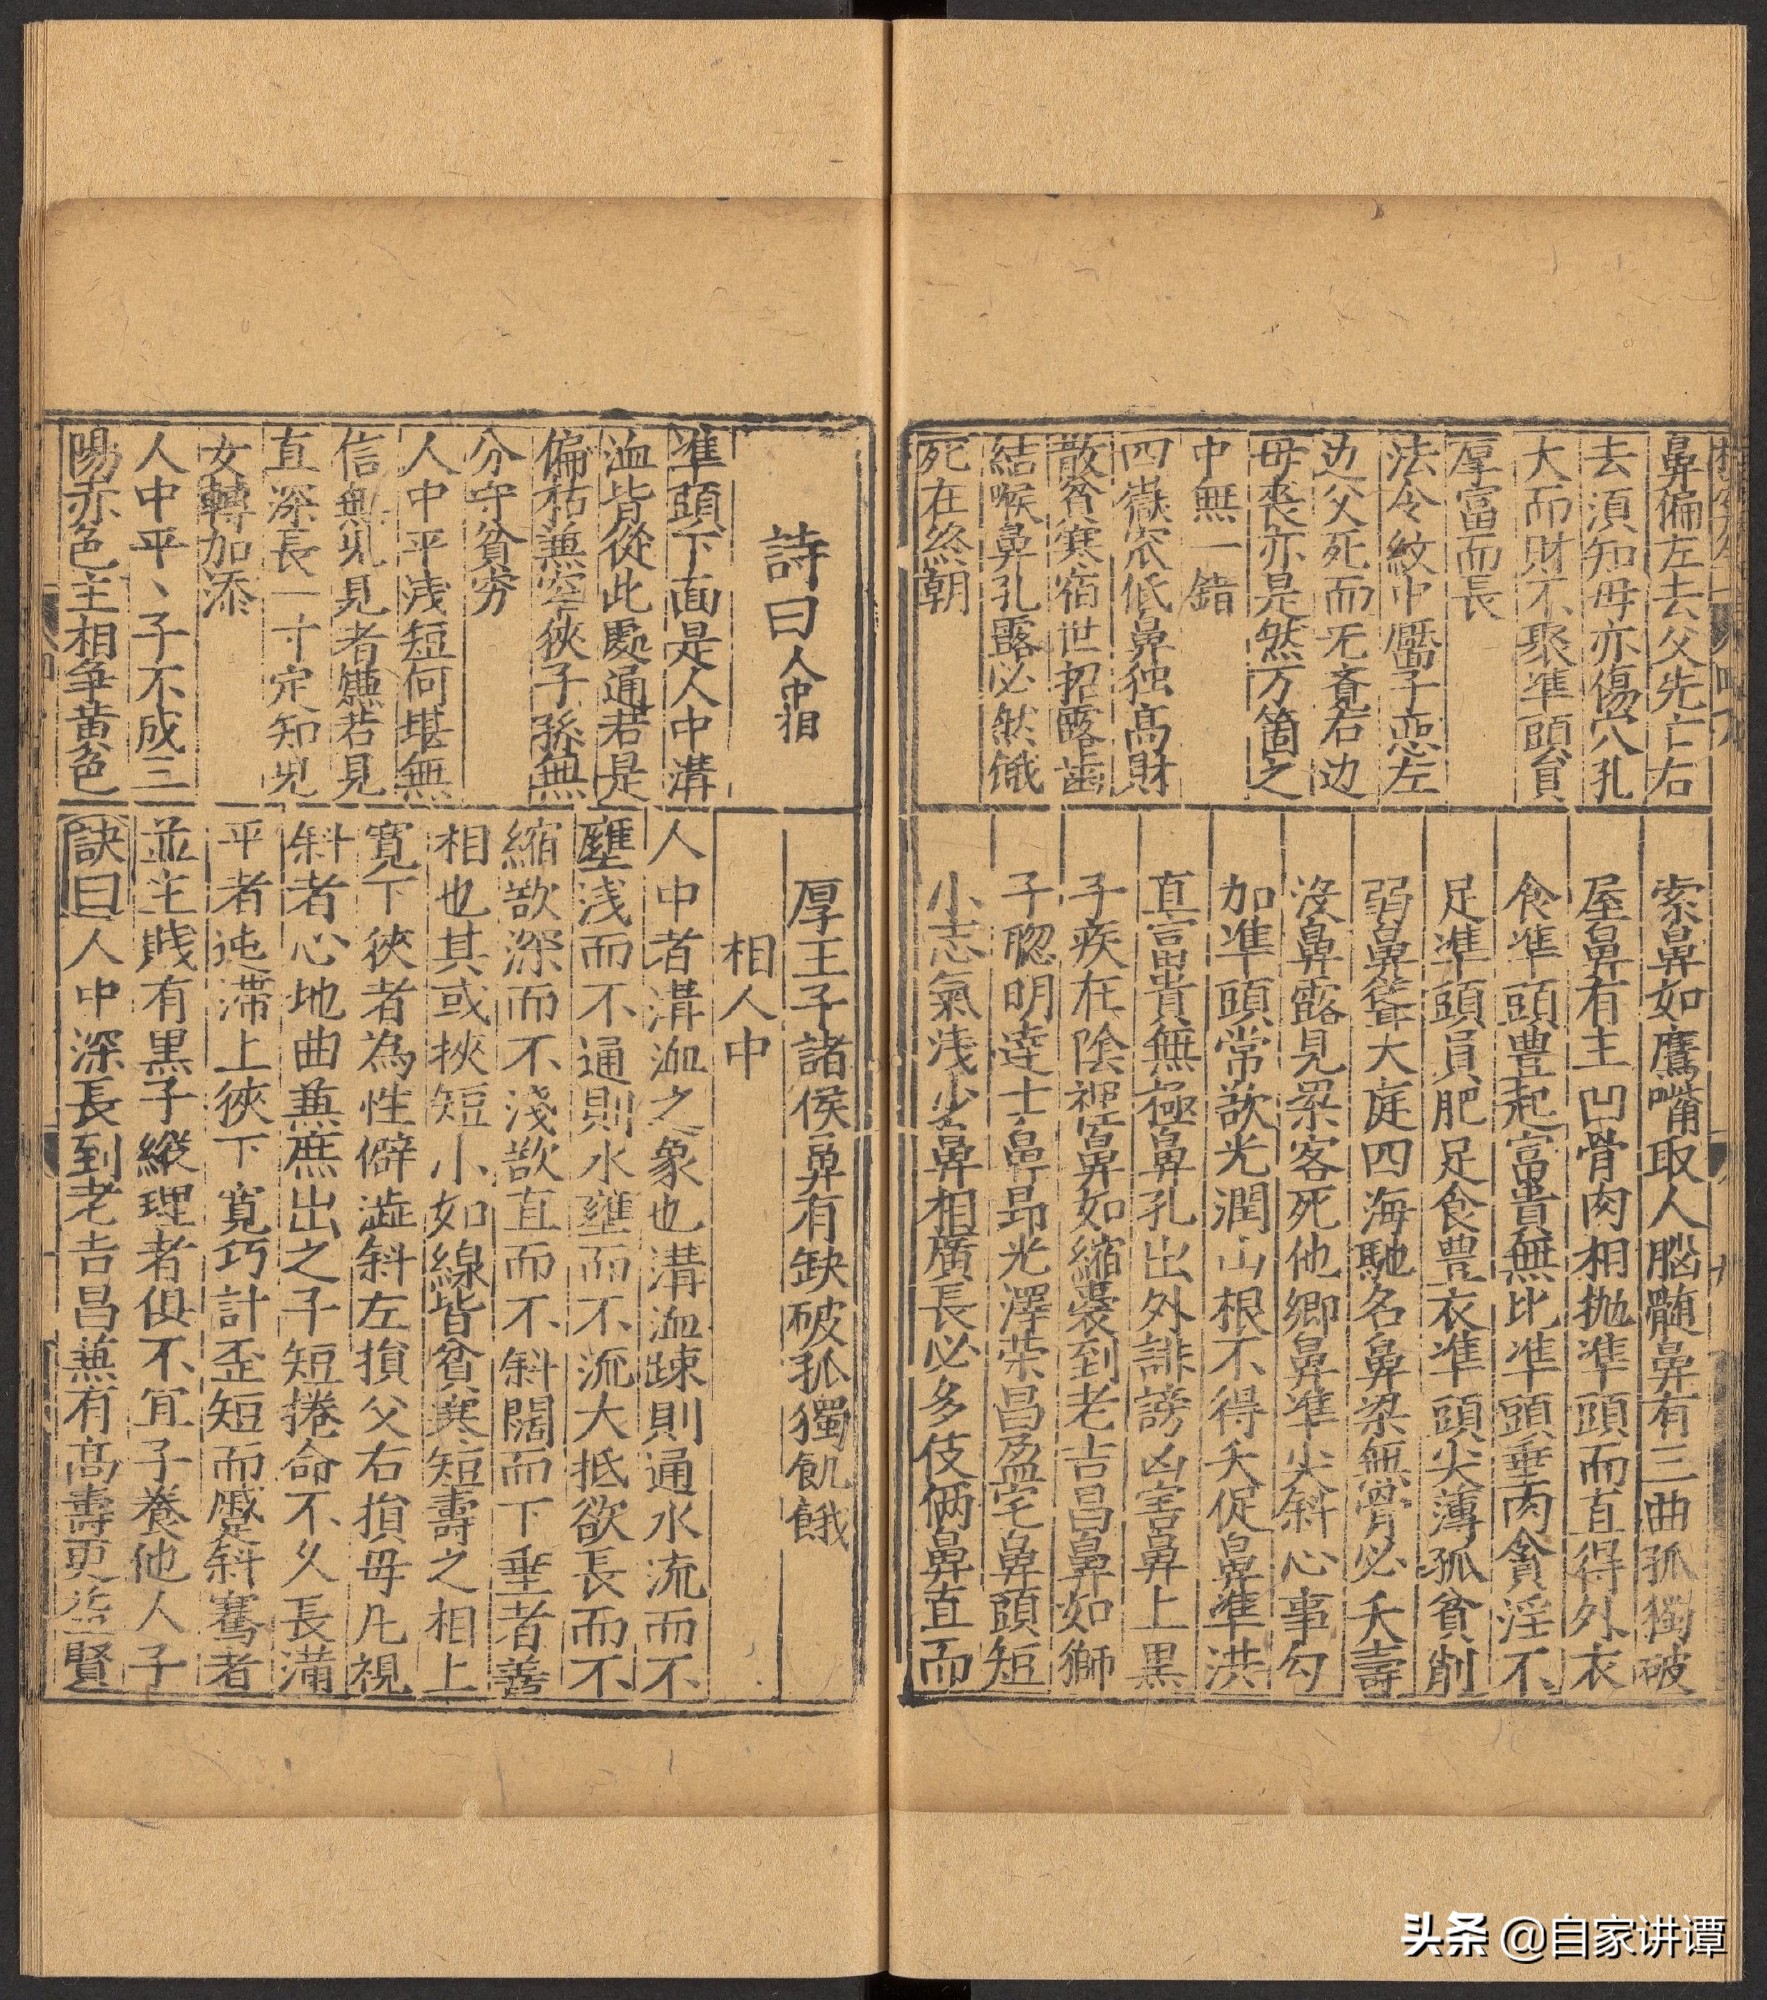 鼻偏左去父先亡右
去須知母亦傷穴孔
大而財不聚準頭貟
厚富而長
法令紋中黶子惡左
边父死而无賫右边
母喪亦是然万箇之
中無一錯
四嶽窊低鼻独髙財
散貧寒宿世招露齒
結喉鼻孔露必然餓
死在終朝
索鼻如鷹嘴取人腦髄鼻有三曲孤獨破
屋鼻有主凹骨肉相抛準頭而直得外衣
食準頭豊起富貴無比準頭垂肉貪淫不
足準頭員肥足食豊衣準頭尖薄孤貧削
弱鼻聳大庭四海馳名鼻梁無骨必夭壽
沒鼻露見梁客死他鄉鼻準尖斜心事勾
加準頭常歆光潤山根不得夭促鼻準洪
直富貴無極鼻孔出外誹謗凶害鼻上黑
子疾在陰裡鼻如縮囊到老吉昌鼻如獅
子聰明達士鼻昂光澤荣昌盈宅鼻頭短
小志氣淺少鼻相廣長必多伎倆鼻直而
詩曰人中相
準頭下面是人中溝
洫皆從此處通若是
偏枯兼窄狹子孫無
分守貧穷
人中平浅短何堪無
信無児見者嫌若見
直深長一寸定知児
女轉加添
人中平、子不成三
陽亦色主相争黄色
厚王子諸侯鼻有缺破孤獨飢餓
相人中
人中者溝洫之象也溝洫踈則通水流而不
壅浅而不通則水壅而不流大抵欲長而不
縮歆深而不淺歆直而不斜闊而下垂者善
相也其或挾短小如線皆貧寒短壽之相上
寬下狹者為性僻澁斜左損父右損母凡視
斜者心地曲兼庶出之子短捲命不久長滿
平者迍滯上狹下寬巧計歪短而蹙斜騫者
並主賎有黒子縱理者俱不宜子養他人子
訣曰人中深長到老吉昌兼有髙壽更益賢
头条 @自家讲谭